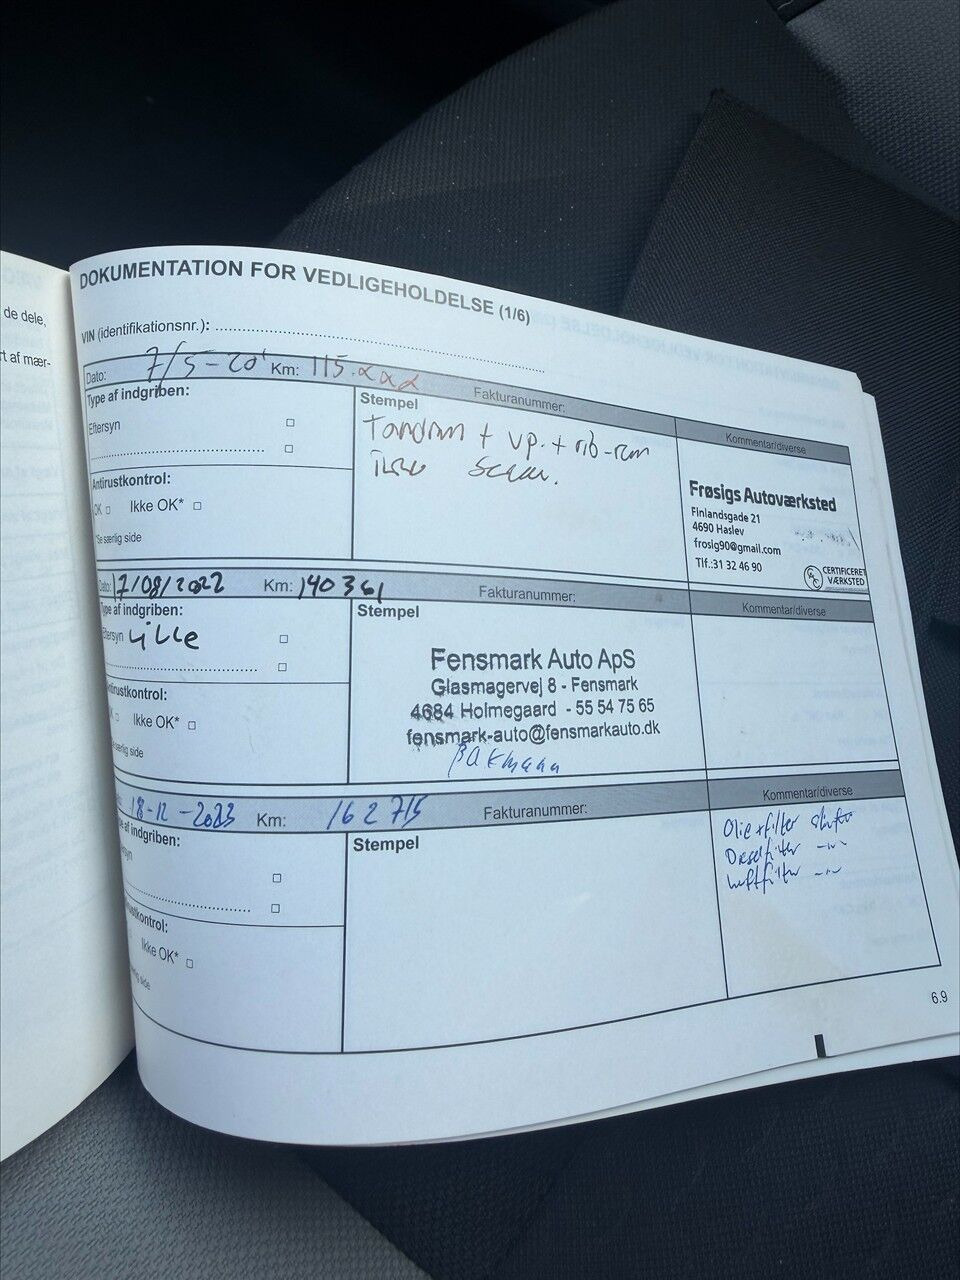 de dele,
rt af mær-
DOKUMENTATION FOR VEDLIGEHOLDELSE (1/6)
VIN (identifikationsnr.):
Dato: 7/5-20 Km: 115.xxx Fakturanummer:
Type af indgriben:
Eftersyn
Antirustkontrol:
OK Ikke OK*
*Se særlig side
Stempel
Tandrem + vp. + rib-rem
Kommentar/diverse
Frøsigs Autoværksted
Finlandsgade 21
4690 Haslev
frosig90@gmail.com
Tlf.:31 32 46 90
CERTIFICERET
VÆRKSTED
Dato: 17/08/2022 Km: 140361 Fakturanummer:
Type af indgriben:
Eftersyn Lille
ntirustkontrol:
K Ikke OK*
særlig side
Stempel
Fensmark Auto ApS
Glasmagervej 8 - Fensmark
4684 Holmegaard - 55 54 75 65
fensmark-auto@fensmarkauto.dk
Kommentar/diverse
18-12-2023 Km: 162715 Fakturanummer:
e af indgriben:
ersyn
rustkontrol:
Ikke OK*
rlig side
Stempel
Kommentar/diverse
Olie+filter skiftet
Dieselfilter -"-
Luftfilter -"-
6.9